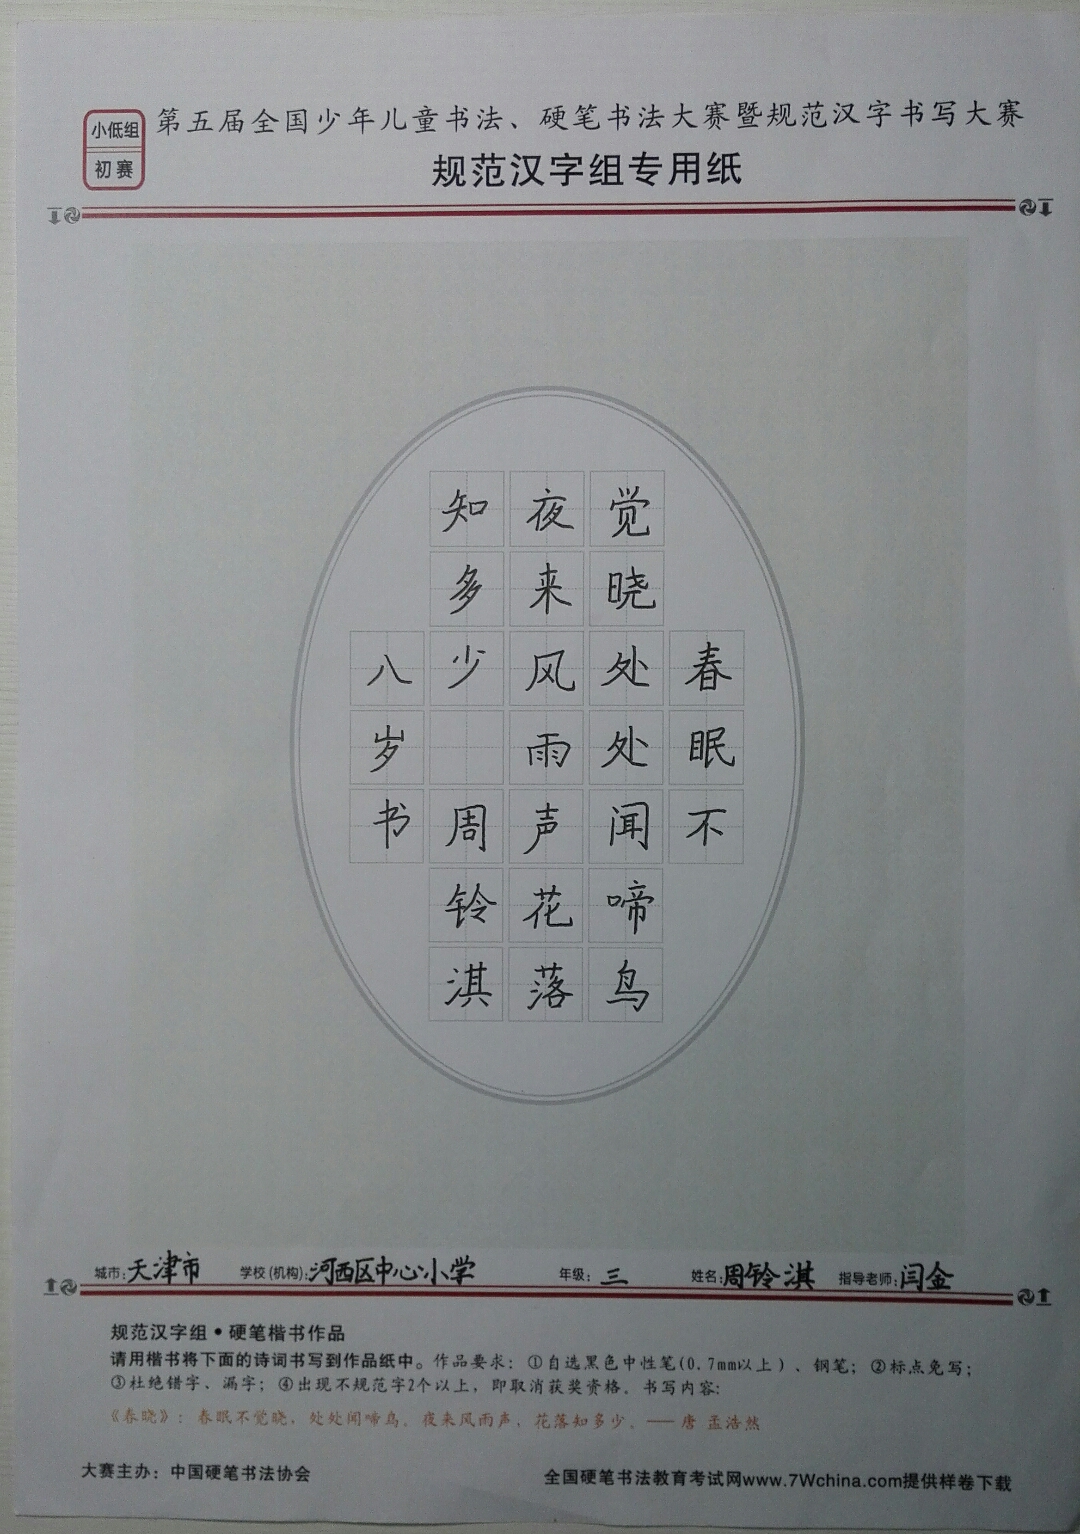 小低组
初赛
第五届全国少年儿童书法、硬笔书法大赛暨规范汉字书写大赛
规范汉字组专用纸
春眠不
觉晓处处闻啼鸟
夜来风雨声花落
知多少 周铃淇
八岁书
城市:天津市 学校(机构):河西区中心小学 年级:三 姓名:周铃淇 指导老师:闫金
规范汉字组•硬笔楷书作品
请用楷书将下面的诗词书写到作品纸中。作品要求：①自选黑色中性笔(0.7mm以上)、钢笔；②标点免写；
③杜绝错字、漏字；④出现不规范字2个以上，即取消获奖资格。书写内容:
《春晓》：春眠不觉晓，处处闻啼鸟。夜来风雨声，花落知多少。——唐 孟浩然
大赛主办：中国硬笔书法协会 全国硬笔书法教育考试网www.7Wchina.com提供样卷下载